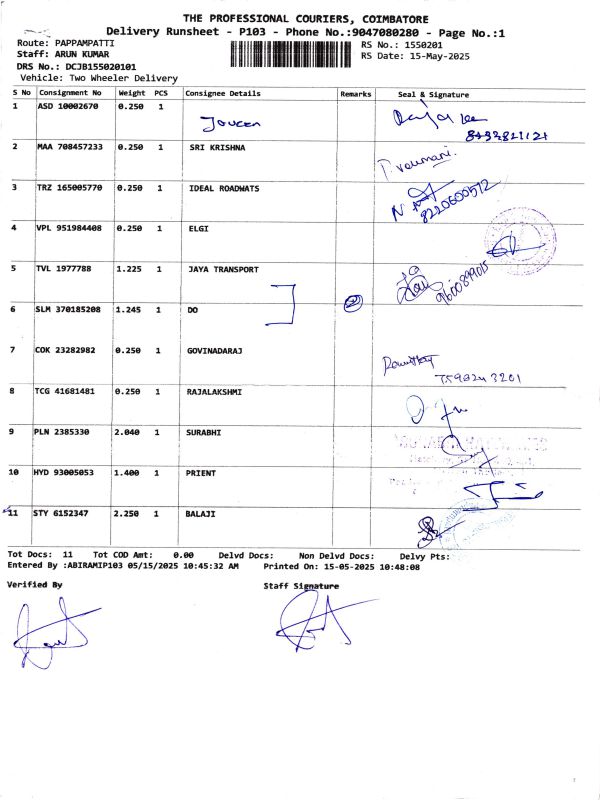 THE PROFESSIONAL COURIERS, COIMBATORE
Delivery Runsheet - P103 - Phone No.:9047080280 - Page No.:1
Route: PAPPAMPATTI
Staff: ARUN KUMAR
DRS No.: DCJB155020101
Vehicle: Two Wheeler Delivery
RS No.: 1550201
RS Date: 15-May-2025
S No Consignment No Weight PCS Consignee Details Remarks Seal & Signature
1 ASD 10002670 0.250 1
2 MAA 708457233 0.250 1 SRI KRISHNA
3 TRZ 165005770 0.250 1 IDEAL ROADWATS
8220600512
4 VPL 951984408 0.250 1 ELGI
5 TVL 1977788 1.225 1 JAYA TRANSPORT
6 SLM 370185208 1.245 1 DO
7 COK 23282982 0.250 1 GOVINADARAJ
8 TCG 41681481 0.250 1 RAJALAKSHMI
9 PLN 2385330 2.040 1 SURABHI
10 HYD 93005053 1.400 1 PRIENT
11 STY 6152347 2.250 1 BALAJI
Tot Docs: 11 Tot COD Amt: 0.00 Delvd Docs: Non Delvd Docs: Delvy Pts:
Entered By :ABIRAMIP103 05/15/2025 10:45:32 AM Printed On: 15-05-2025 10:48:08
Verified By Staff Signature